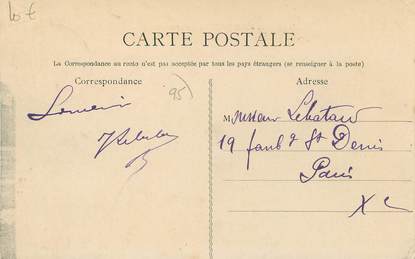 10 €
CARTE POSTALE
La Correspondance au recto n'est pas acceptée par tous les pays étrangers (se renseigner à la poste)
Correspondance
Adresse
95)
Souvenir
Monsieur Lebatard
19 faub d St Denis
Paris
Xe